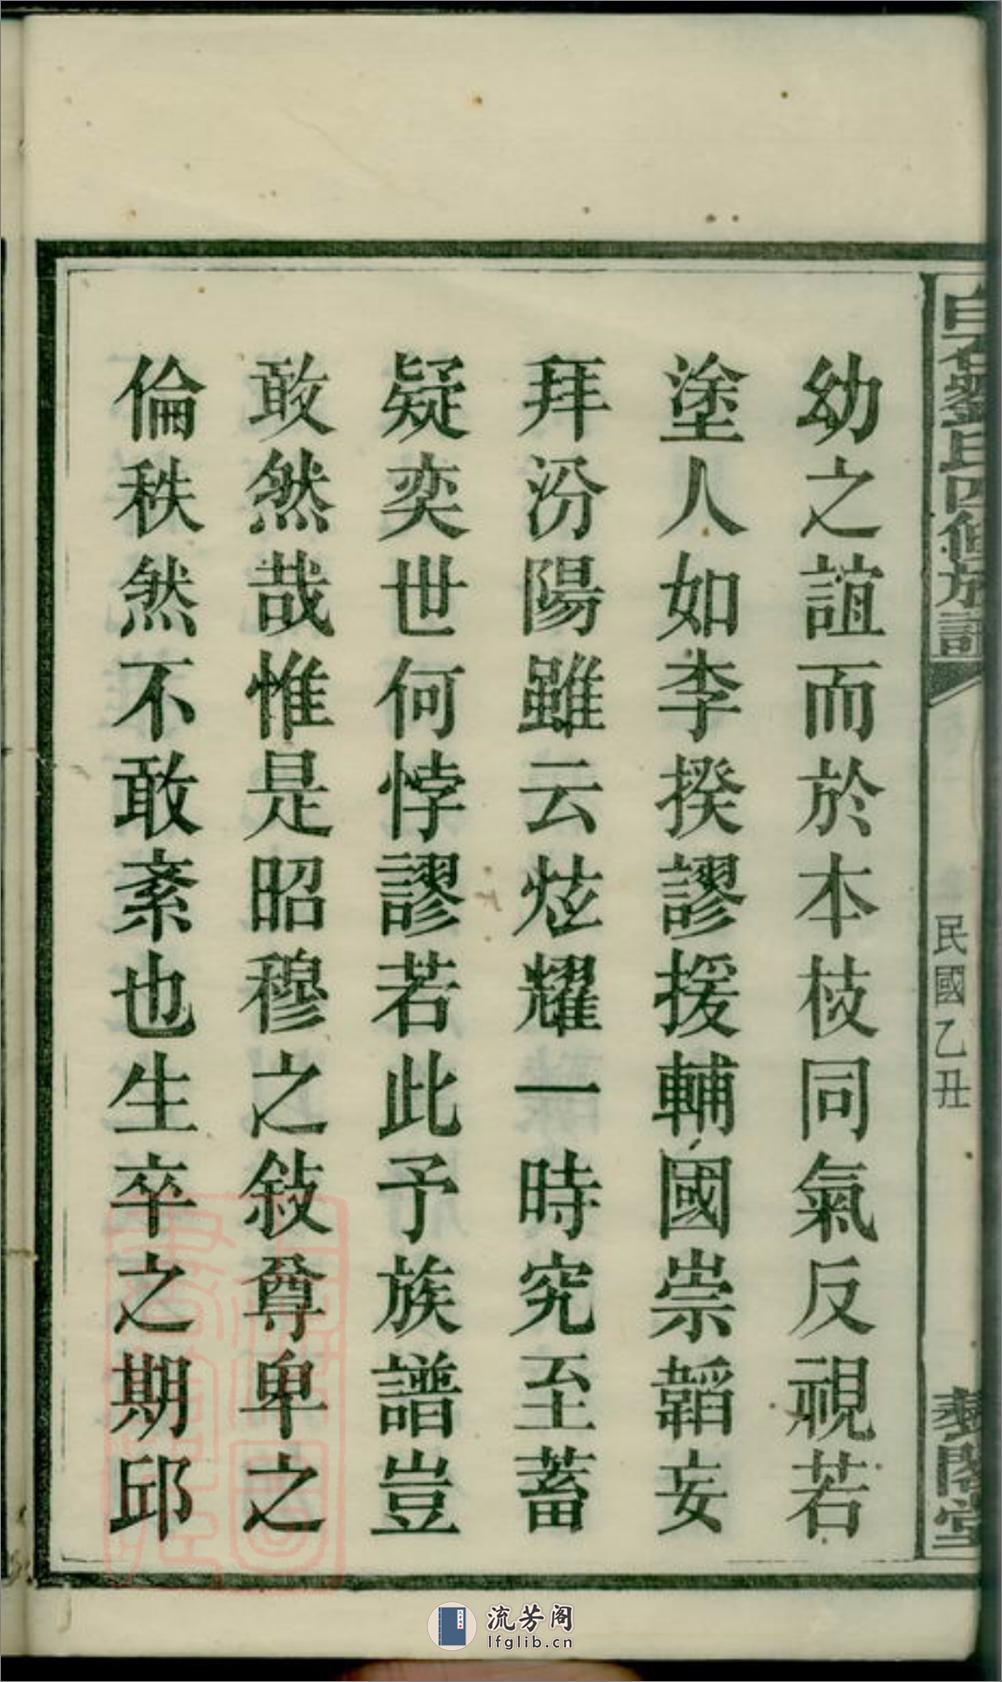 白石劉氏四修族譜
民國乙丑
藜閣堂
幼之誼而於本枝同氣反視若
塗人如李揆謬援輔國崇韜妄
拜汾陽雖云炫耀一時究至蓄
疑奕世何悖謬若此予族譜豈
敢然哉惟是昭穆之敍尊卑之
倫秩然不敢紊也生卒之期邱
流芳阁
lfglib.cn